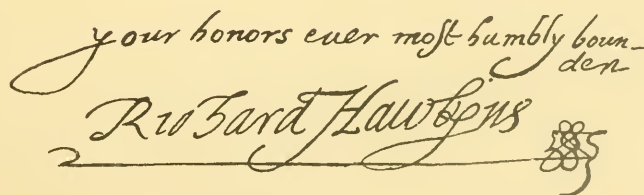 your honors euer most humbly boun-
den
Richard Hawkyns